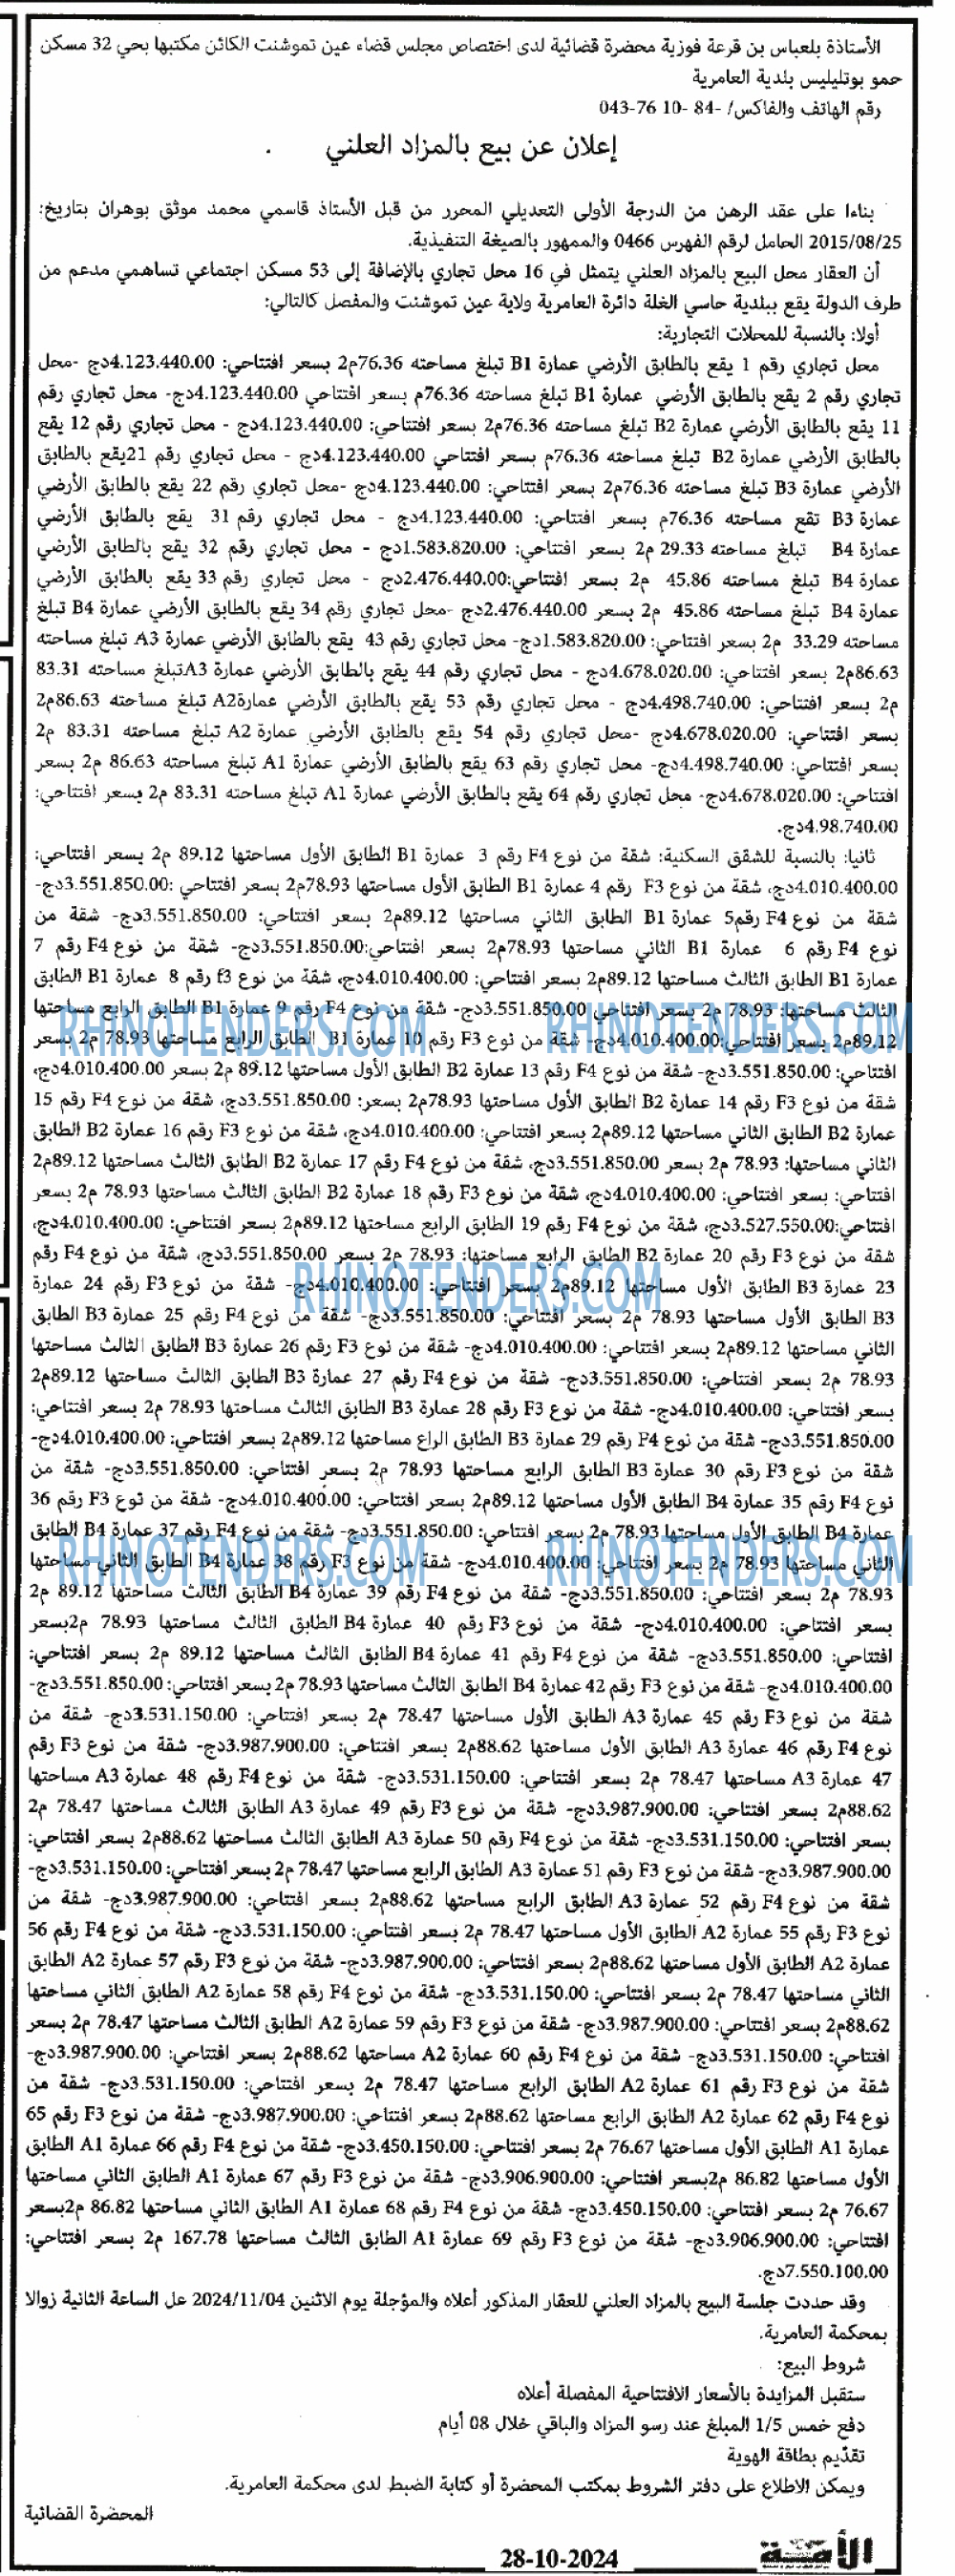 الأستاذة بلعباس بن قرعة فوزية محضرة قضائية لدى اختصاص مجلس قضاء عين تموشنت الكائن مكتبها بحي 32 مسكن
حمو بوتليليس بلدية العامرية
رقم الهاتف والفاكس/ -84 -10 76-043
إعلان عن بيع بالمزاد العلني
بناءا على عقد الرهن من الدرجة الأولى التعديلي المحرر من قبل الأستاذ قاسمي محمد موثق بوهران بتاريخ:
2015/08/25 الحامل لرقم الفهرس 0466 والممهور بالصيغة التنفيذية.
أن العقار محل البيع بالمزاد العلني يتمثل في 16 محل تجاري بالإضافة إلى 53 مسكن اجتماعي تساهمي مدعم من
طرف الدولة يقع ببلدية حاسي الغلة دائرة العامرية ولاية عين تموشنت والمفصل كالتالي:
أولا: بالنسبة للمحلات التجارية:
محل تجاري رقم 1 يقع بالطابق الأرضي عمارة B1 تبلغ مساحته 76.36م2 بسعر افتتاحي: 4.123.440.00دج -محل
تجاري رقم 2 يقع بالطابق الأرضي عمارة B1 تبلغ مساحته 76.36م بسعر افتتاحي 4.123.440.00دج- محل تجاري رقم
11 يقع بالطابق الأرضي عمارة B2 تبلغ مساحته 76.36م2 بسعر افتتاحي: 4.123.440.00دج - محل تجاري رقم 12 يقع
بالطابق الأرضي عمارة B2 تبلغ مساحته 76.36م بسعر افتتاحي 4.123.440.00دج - محل تجاري رقم 21يقع بالطابق
الأرضي عمارة B3 تبلغ مساحته 76.36م2 بسعر افتتاحي: 4.123.440.00دج -محل تجاري رقم 22 يقع بالطابق الأرضي
عمارة B3 تقع مساحته 76.36م بسعر افتتاحي: 4.123.440.00دج - محل تجاري رقم 31 يقع بالطابق الأرضي
عمارة B4 تبلغ مساحته 29.33 م2 بسعر افتتاحي: 1.583.820.00دج - محل تجاري رقم 32 يقع بالطابق الأرضي
عمارة B4 تبلغ مساحته 45.86 م2 بسعر افتتاحي:2.476.440.00دج - محل تجاري رقم 33 يقع بالطابق الأرضي
عمارة B4 تبلغ مساحته 45.86 م2 بسعر 2.476.440.00دج -محل تجاري رقم 34 يقع بالطابق الأرضي عمارة B4 تبلغ
مساحته 33.29 م2 بسعر افتتاحي: 1.583.820.00دج- محل تجاري رقم 43 يقع بالطابق الأرضي عمارة A3 تبلغ مساحته
86.63م2 بسعر افتتاحي: 4.678.020.00دج - محل تجاري رقم 44 يقع بالطابق الأرضي عمارة A3تبلغ مساحته 83.31
م2 بسعر افتتاحي: 4.498.740.00دج - محل تجاري رقم 53 يقع بالطابق الأرضي عمارةA2 تبلغ مساحته 86.63م2
بسعر افتتاحي: 4.678.020.00دج -محل تجاري رقم 54 يقع بالطابق الأرضي عمارة A2 تبلغ مساحته 83.31 م2
بسعر افتتاحي: 4.498.740.00دج- محل تجاري رقم 63 يقع بالطابق الأرضي عمارة A1 تبلغ مساحته 86.63 م2 بسعر
افتتاحي: 4.678.020.00دج- محل تجاري رقم 64 يقع بالطابق الأرضي عمارة A1 تبلغ مساحته 83.31 م2 بسعر افتتاحي:
4.98.740.00دج.
ثانيا: بالنسبة للشقق السكنية: شقة من نوع F4 رقم 3 عمارة B1 الطابق الأول مساحتها 89.12 م2 بسعر افتتاحي:
4.010.400.00دج، شقة من نوع F3 رقم 4 عمارة B1 الطابق الأول مساحتها 78.93م2 بسعر افتتاحي :3.551.850.00دج-
شقة من نوع F4 رقم5 عمارة B1 الطابق الثاني مساحتها 89.12م2 بسعر افتتاحي: 3.551.850.00دج- شقة من
نوع F4 رقم 6 عمارة B1 الثاني مساحتها 78.93م2 بسعر افتتاحي:3.551.850.00دج- شقة من نوع F4 رقم 7
عمارة B1 الطابق الثالث مساحتها 89.12م2 بسعر افتتاحي: 4.010.400.00دج، شقة من نوع f3 رقم 8 عمارة B1 الطابق
الثالث مساحتها: 78.93 م2 بسعر افتتاحي 3.551.850.00دج- شقة من نوع F4 رقم 9 عمارة B1 الطابق الرابع مساحتها
89.12م2 بسعر افتتاحي:4.010.400.00دج- شقة من نوع F3 رقم 10 عمارة B1 الطابق الرابع مساحتها 78.93 م2 بسعر
افتتاحي: 3.551.850.00دج- شقة من نوع F4 رقم 13 عمارة B2 الطابق الأول مساحتها 89.12 م2 بسعر 4.010.400.00دج،
شقة من نوع F3 رقم 14 عمارة B2 الطابق الأول مساحتها 78.93م2 بسعر: 3.551.850.00دج، شقة من نوع F4 رقم 15
عمارة B2 الطابق الثاني مساحتها 89.12م2 بسعر افتتاحي: 4.010.400.00دج، شقة من نوع F3 رقم 16 عمارة B2 الطابق
الثاني مساحتها: 78.93 م2 بسعر 3.551.850.00دج، شقة من نوع F4 رقم 17 عمارة B2 الطابق الثالث مساحتها 89.12م2
افتتاحي: بسعر افتتاحي: 4.010.400.00دج، شقة من نوع F3 رقم 18 عمارة B2 الطابق الثالث مساحتها 78.93 م2 بسعر
افتتاحي:3.527.550.00دج، شقة من نوع F4 رقم 19 الطابق الرابع مساحتها 89.12م2 بسعر افتتاحي: 4.010.400.00دج،
شقة من نوع F3 رقم 20 عمارة B2 الطابق الرابع مساحتها: 78.93 م2 بسعر 3.551.850.00دج، شقة من نوع F4 رقم
23 عمارة B3 الطابق الأول مساحتها 89.12م2 بسعر افتتاحي: 4.010.400.00دج- شقة من نوع F3 رقم 24 عمارة
B3 الطابق الأول مساحتها 78.93 م2 بسعر افتتاحي: 3.551.850.00دج- شقة من نوع F4 رقم 25 عمارة B3 الطابق
الثاني مساحتها 89.12م2 بسعر افتتاحي: 4.010.400.00دج- شقة من نوع F3 رقم 26 عمارة B3 الطابق الثالث مساحتها
78.93 م2 بسعر افتتاحي: 3.551.850.00دج- شقة من نوع F4 رقم 27 عمارة B3 الطابق الثالث مساحتها 89.12م2
بسعر افتتاحي: 4.010.400.00دج- شقة من نوع F3 رقم 28 عمارة B3 الطابق الثالث مساحتها 78.93 م2 بسعر افتتاحي:
3.551.850.00دج- شقة من نوع F4 رقم 29 عمارة B3 الطابق الراع مساحتها 89.12م2 بسعر افتتاحي: 4.010.400.00دج-
شقة من نوع F3 رقم 30 عمارة B3 الطابق الرابع مساحتها 78.93 م2 بسعر افتتاحي: 3.551.850.00دج- شقة من
نوع F4 رقم 35 عمارة B4 الطابق الأول مساحتها 89.12م2 بسعر افتتاحي: 4.010.400.00دج- شقة من نوع F3 رقم 36
عمارة B4 الطابق الأول مساحتها 78.93 م2 بسعر افتتاحي: 3.551.850.00دج- شقة من نوع F4 رقم 37 عمارة B4 الطابق
الثاني مساحتها 78.93 م2 بسعر افتتاحي: 4.010.400.00دج- شقة من نوع F3 رقم 38 عمارة B4 الطابق الثاني مساحتها
78.93 م2 بسعر افتتاحي: 3.551.850.00دج- شقة من نوع F4 رقم 39 عمارة B4 الطابق الثالث مساحتها 89.12 م2
بسعر افتتاحي: 4.010.400.00دج- شقة من نوع F3 رقم 40 عمارة B4 الطابق الثالث مساحتها 78.93 م2بسعر
افتتاحي: 3.551.850.00دج- شقة من نوع F4 رقم 41 عمارة B4 الطابق الثالث مساحتها 89.12 م2 بسعر افتتاحي:
4.010.400.00دج- شقة من نوع F3 رقم 42 عمارة B4 الطابق الثالث مساحتها 78.93 م2 بسعر افتتاحي: 3.551.850.00دج-
شقة من نوع F3 رقم 45 عمارة A3 الطابق الأول مساحتها 78.47 م2 بسعر افتتاحي: 3.531.150.00دج- شقة من
نوع F4 رقم 46 عمارة A3 الطابق الأول مساحتها 88.62م2 بسعر افتتاحي: 3.987.900.00دج- شقة من نوع F3 رقم
47 عمارة A3 مساحتها 78.47 م2 بسعر افتتاحي: 3.531.150.00دج- شقة من نوع F4 رقم 48 عمارة A3 مساحتها
88.62م2 بسعر افتتاحي: 3.987.900.00دج- شقة من نوع F3 رقم 49 عمارة A3 الطابق الثالث مساحتها 78.47 م2
بسعر افتتاحي: 3.531.150.00دج- شقة من نوع F4 رقم 50 عمارة A3 الطابق الثالث مساحتها 88.62م2 بسعر افتتاحي:
3.987.900.00دج- شقة من نوع F3 رقم 51 عمارة A3 الطابق الرابع مساحتها 78.47 م2 بسعر افتتاحي: 3.531.150.00دج-
شقة من نوع F4 رقم 52 عمارة A3 الطابق الرابع مساحتها 88.62م2 بسعر افتتاحي: 3.987.900.00دج- شقة من
نوع F3 رقم 55 عمارة A2 الطابق الأول مساحتها 78.47 م2 بسعر افتتاحي: 3.531.150.00دج- شقة من نوع F4 رقم 56
عمارة A2 الطابق الأول مساحتها 88.62م2 بسعر افتتاحي: 3.987.900.00دج- شقة من نوع F3 رقم 57 عمارة A2 الطابق
الثاني مساحتها 78.47 م2 بسعر افتتاحي: 3.531.150.00دج- شقة من نوع F4 رقم 58 عمارة A2 الطابق الثاني مساحتها
88.62م2 بسعر افتتاحي: 3.987.900.00دج- شقة من نوع F3 رقم 59 عمارة A2 الطابق الثالث مساحتها 78.47 م2 بسعر
افتتاحي: 3.531.150.00دج- شقة من نوع F4 رقم 60 عمارة A2 مساحتها 88.62م2 بسعر افتتاحي: 3.987.900.00دج-
شقة من نوع F3 رقم 61 عمارة A2 الطابق الرابع مساحتها 78.47 م2 بسعر افتتاحي: 3.531.150.00دج- شقة من
نوع F4 رقم 62 عمارة A2 الطابق الرابع مساحتها 88.62م2 بسعر افتتاحي: 3.987.900.00دج- شقة من نوع F3 رقم 65
عمارة A1 الطابق الأول مساحتها 76.67 م2 بسعر افتتاحي: 3.450.150.00دج- شقة من نوع F4 رقم 66 عمارة A1 الطابق
الأول مساحتها 86.82 م2بسعر افتتاحي: 3.906.900.00دج- شقة من نوع F3 رقم 67 عمارة A1 الطابق الثاني مساحتها
76.67 م2 بسعر افتتاحي: 3.450.150.00دج- شقة من نوع F4 رقم 68 عمارة A1 الطابق الثاني مساحتها 86.82 م2بسعر
افتتاحي: 3.906.900.00دج- شقة من نوع F3 رقم 69 عمارة A1 الطابق الثالث مساحتها 167.78 م2 بسعر افتتاحي:
7.550.100.00دج.
وقد حددت جلسة البيع بالمزاد العلني للعقار المذكور أعلاه والمؤجلة يوم الاثنين 2024/11/04 عل الساعة الثانية زوالا
بمحكمة العامرية.
شروط البيع:
ستقبل المزايدة بالأسعار الافتتاحية المفصلة أعلاه
دفع خمس 1/5 المبلغ عند رسو المزاد والباقي خلال 08 أيام
تقديم بطاقة الهوية
ويمكن الاطلاع على دفتر الشروط بمكتب المحضرة أو كتابة الضبط لدى محكمة العامرية.
المحضرة القضائية
RHINOTENDERS.COM
RHINOTENDERS.COM
RHINOTENDERS.COM
RHINOTENDERS.COM
RHINOTENDERS.COM
الأمة
28-10-2024